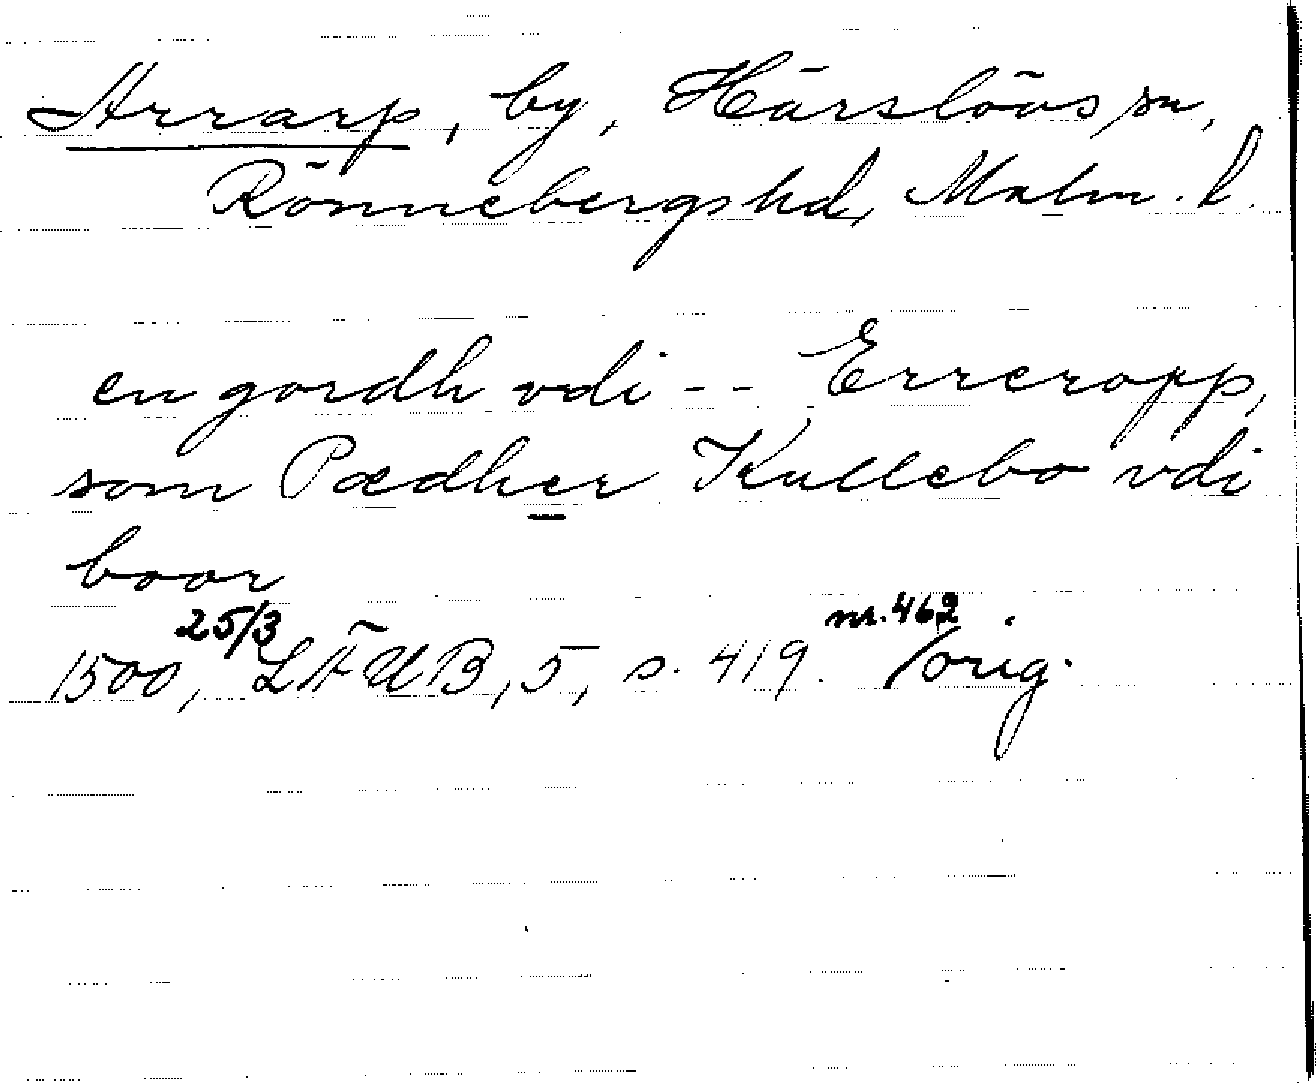 Arrarp, by, Härslövs sn,
Rönnebergs hd, Malm. l.
en gordh vdi -- Erreropp,
som Pædher Kullebo vdi
boor
25/3 nr. 462
1500, LÄUB, 5, s. 419. /orig.